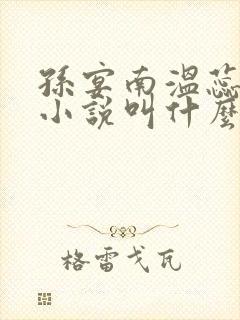 孫宴南溫蕊
小說叫什麼
格雷戈瓦